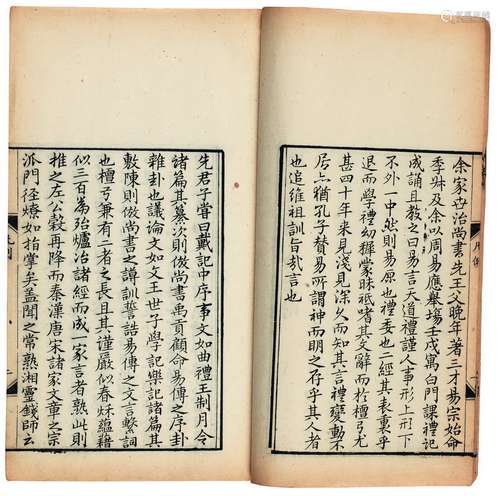 余家世治尚書先王父晚年著三才易宗始命
季𠦑及余以周易應舉塲壬戌寓白門課禮記
成誦且教之曰易言天道禮謹人事形上形下
不外一中然則易原也禮委也二經其表裏乎
退而學禮幼穉蒙昧祗嗜其文辭而於檀弓尤
甚四十年來見淺見深久而知其言禮變動不
居亦猶孔子賛易所謂神而明之存乎其人者
也追維祖訓旨哉言也
先君子嘗曰戴記中序事文如曲禮王制月令
諸篇其纂次則倣尚書禹貢顧命易傳之序卦
雜卦也議論文如文王世子學記樂記諸篇其
敷陳則倣尚書之謨訓誓誥易傳之文言繫詞
也檀弓兼有二者之長且其謹嚴似春秋蘊藉
似三百篇殆爐冶諸經而成一家言者熟此則
推之左公穀再降而秦漢唐宋諸家文章之宗
派門徑燎如指掌矣葢聞之常熟湘靈錢師云